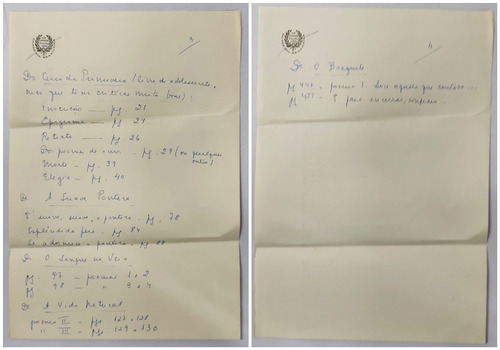 3
Da Casa da Primavera (livro de adolescente,
mas que teve críticas muito boas):
Invocação — pg. 21
Epigrama — pg. 24
Retrato — pg. 26
Do poema do amor — pg. 29 (ou qualquer
outro)
Morte — pg. 39
Elegia — pg. 40
De A Suave Pantera
É suave, suave, a pantera - pg. 78
Esplêndida fera — pg. 84
pantera — pg. 88
De O Sangue na Veia
pg. 97 — poemas 1 e 2
pg. 98 — " 3 e 4
De A Vida Natural
poema II — pgs 127 e 128
" III — pgs 129 e 130
4
De O Banquete
pg 447 - poema 1.
pg